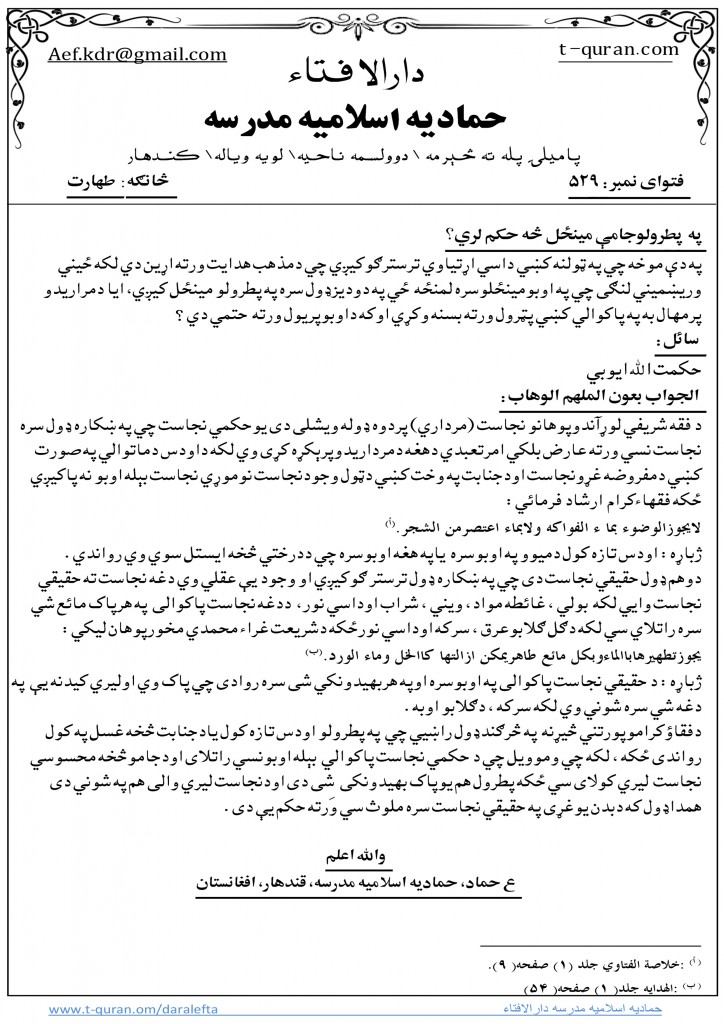 Aef.kdr@gmail.com
t-quran.com
دارالافتاء
حمادیه اسلامیه مدرسه
پامیلي پله ته څېرمه \ دوولسمه ناحیه\ لویه ویاله\ کندهار
فتوای نمبر: ۵۲۹
څانګه: طهارت
په پطرولوجامې مینځل څه حکم لري؟
په دې موخه چي په ټولنه کښي داسي اړتیاوي ترسترګو کیږي چي د مذهب هدایت ورته اړین دی لکه ځیني
وریښمیني لنګۍ چي په اوبو مینځلو سره لمنځه ځي په دودیز ډول سره په پطرولو مینځل کیږي، ایا د مراریدو
پر مهال به په پاکوالي کښي پټرول ورته بسنه وکړي او که د اوبو پر یول ورته حتمي دي ؟
سائل:
حکمت الله ایوبي
الجواب بعون الملهم الوهاب:
د فقه شریفي لوړ آندو پوهانو نجاست (مرداري) پر دوه ډوله ویشلی دی یو حکمي نجاست چي په ښکاره ډول سره
نجاست نسي ورته عارض بلکي امر تعبدي دهغه د مردارید و پرېکړه کړی وي لکه د اودس د ماتوالي په صورت
کښي د مفروضه غړو نجاست او د جنابت په وخت کښي د ټول وجود نجاست نو موړي نجاست بېله اوبو نه پاکیږي
ځکه فقهاء کرام ارشاد فرمائي :
لایجوزالوضوء بما ء الفواکه ولابماء اعتصرمن الشجر.(أ)
ژباړه : اودس تازه کول د میوو په اوبو سره یا په هغه اوبو سره چي د درختي څخه ایستل سوي وي رواندي .
دوهم ډول حقیقي نجاست دی چي په ښکاره ډول ترسترګو کیږي او وجود یې عقلي وي دغه نجاست ته حقیقي
نجاست وایي لکه بولي ، غائطه مواد ، ویني ، شراب او داسي نور ، ددغه نجاست پاکوالی په هر پاک مائع شي
سره راتلای سي لکه د ګل ګلابو عرق ، سرکه او داسي نور ځکه د شریعت غراء محمدي مخور پوهان لیکي :
یجوز تطهیرها بالماء وبکل مائع طاهر یمکن ازالتها کالخل وماء الورد.(ب)
ژباړه : د حقیقي نجاست پاکوالی په اوبو سره او په هر بهیدونکي شی سره روادی چي پاک وي او لیري کیدنه یې په
دغه شي سره شوني وي لکه سرکه ، د ګلابو اوبه .
د فقاؤ کرامو پورتني څیړنه په څرګند ډول را ښیي چي په پطرولو اودس تازه کول یا د جنابت څخه غسل په کول
رواندی ځکه ، لکه چي و موویل چي د حکمي نجاست پاکوالي بېله اوبو نسي راتلای او د جامو څخه محسوسي
نجاست لیري کولای سي ځکه پطرول هم یو پاک بهیدونکی شی دی او د نجاست لیري والی هم په شوني دی
همدا ډول که د بدن یو غړی په حقیقي نجاست سره ملوث سي وَرته حکم یې دی .
والله اعلم
ع حماد، حمادیه اسلامیه مدرسه، قندهار، افغانستان
(أ) :خلاصة الفتاوي جلد (۱) صفحه( ۹).
(ب) :الهدایه جلد( ۱) صفحه( ۵۴)
www.t-quran.om/daralefta
حمادیه اسلامیه مدرسه دارالافتاء